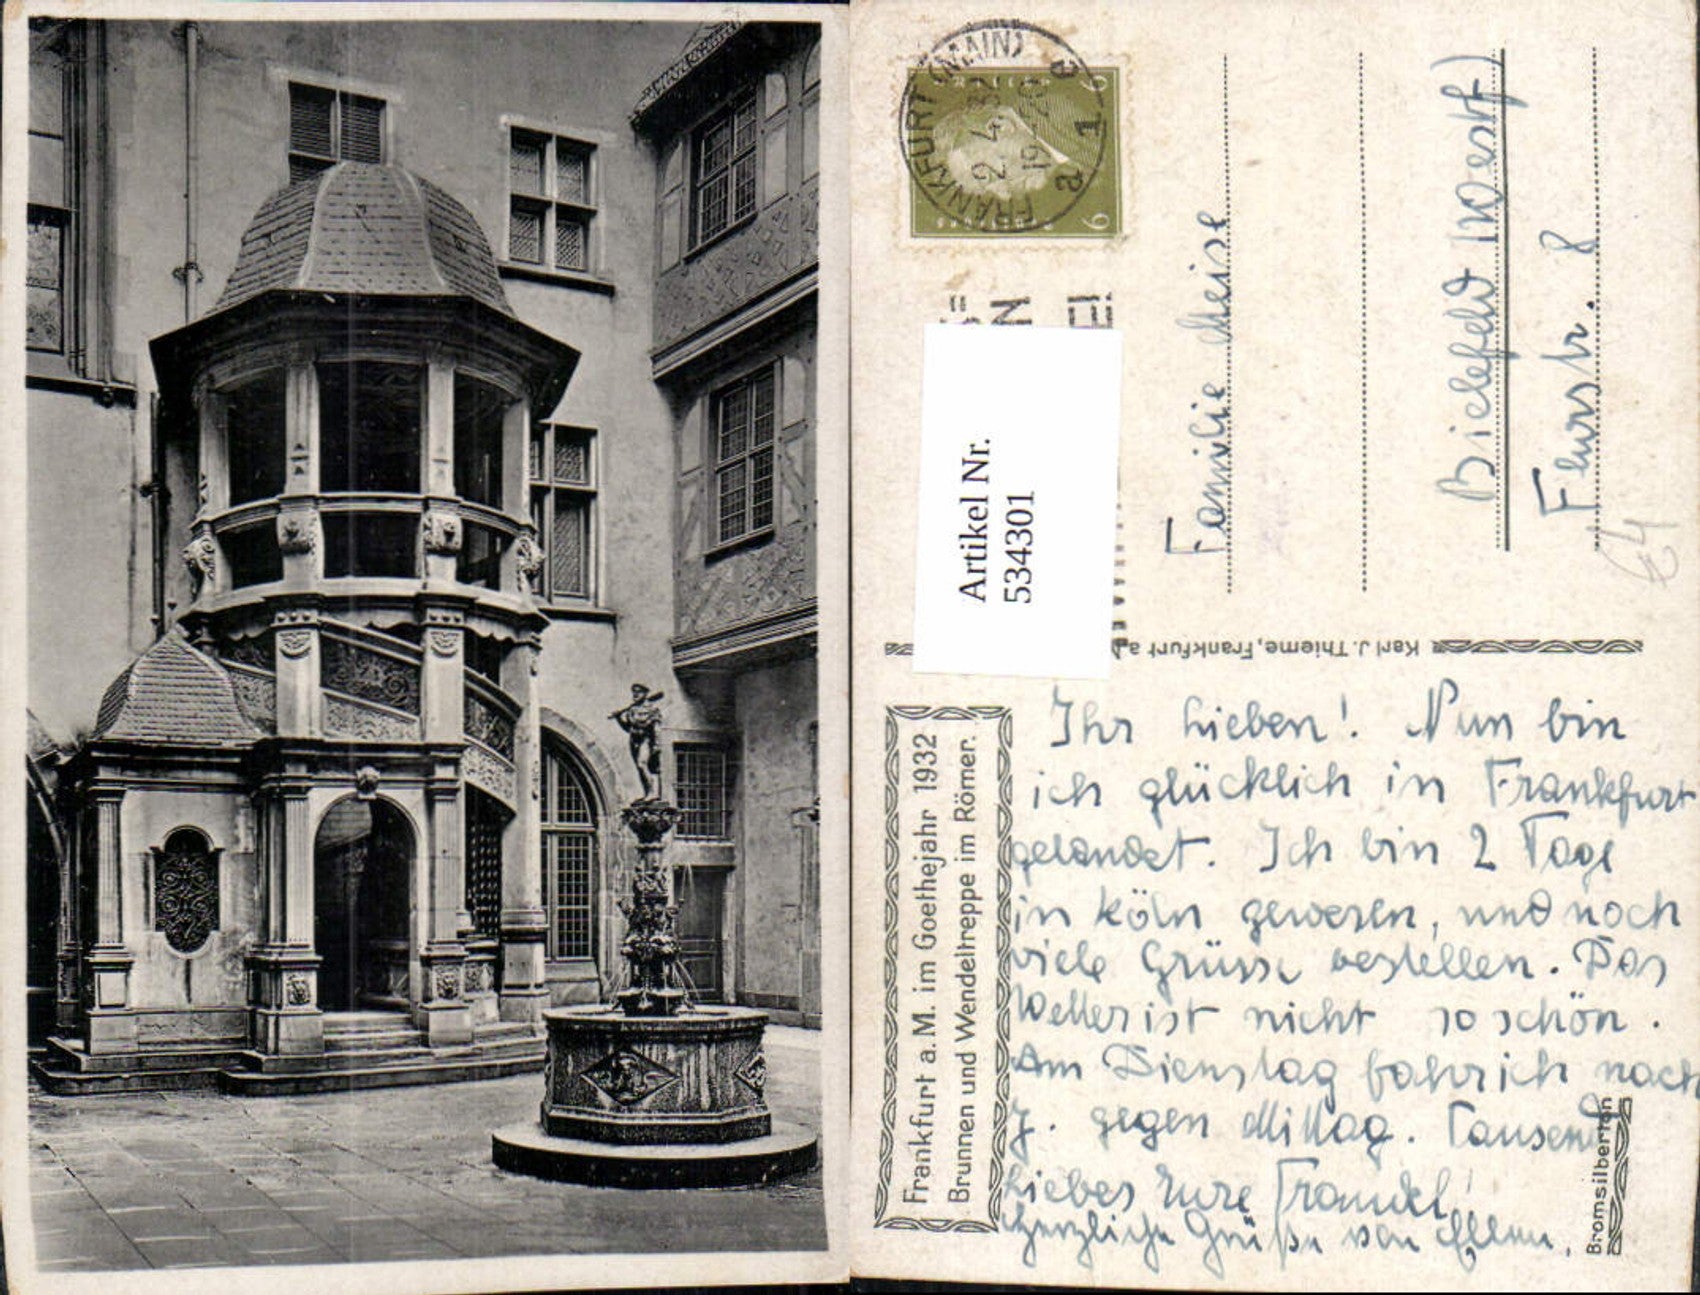 FRANKFURT (MAIN)
2.4.32
19-20
a 1 a
6 6
6
Artikel Nr.
534301
Familie Meise
Bielefeld (Westf)
Flurstr. 8
€4
Karl J. Thieme, Frankfurt a.
Frankfurt a.M. im Goethejahr 1932
Brunnen und Wendeltreppe im Römer.
Ihr Lieben! Nun bin
ich glücklich in Frankfurt
gelandet. Ich bin 2 Tage
in Köln gewesen, und noch
viele Grüsse bestellen. Das
Wetter ist nicht so schön.
Am Dienstag fahr ich nach
J. gegen Mittag. Tausend
Liebes Eure Traudel!
Herzliche Grüße von Ellen.
Bromsilberton